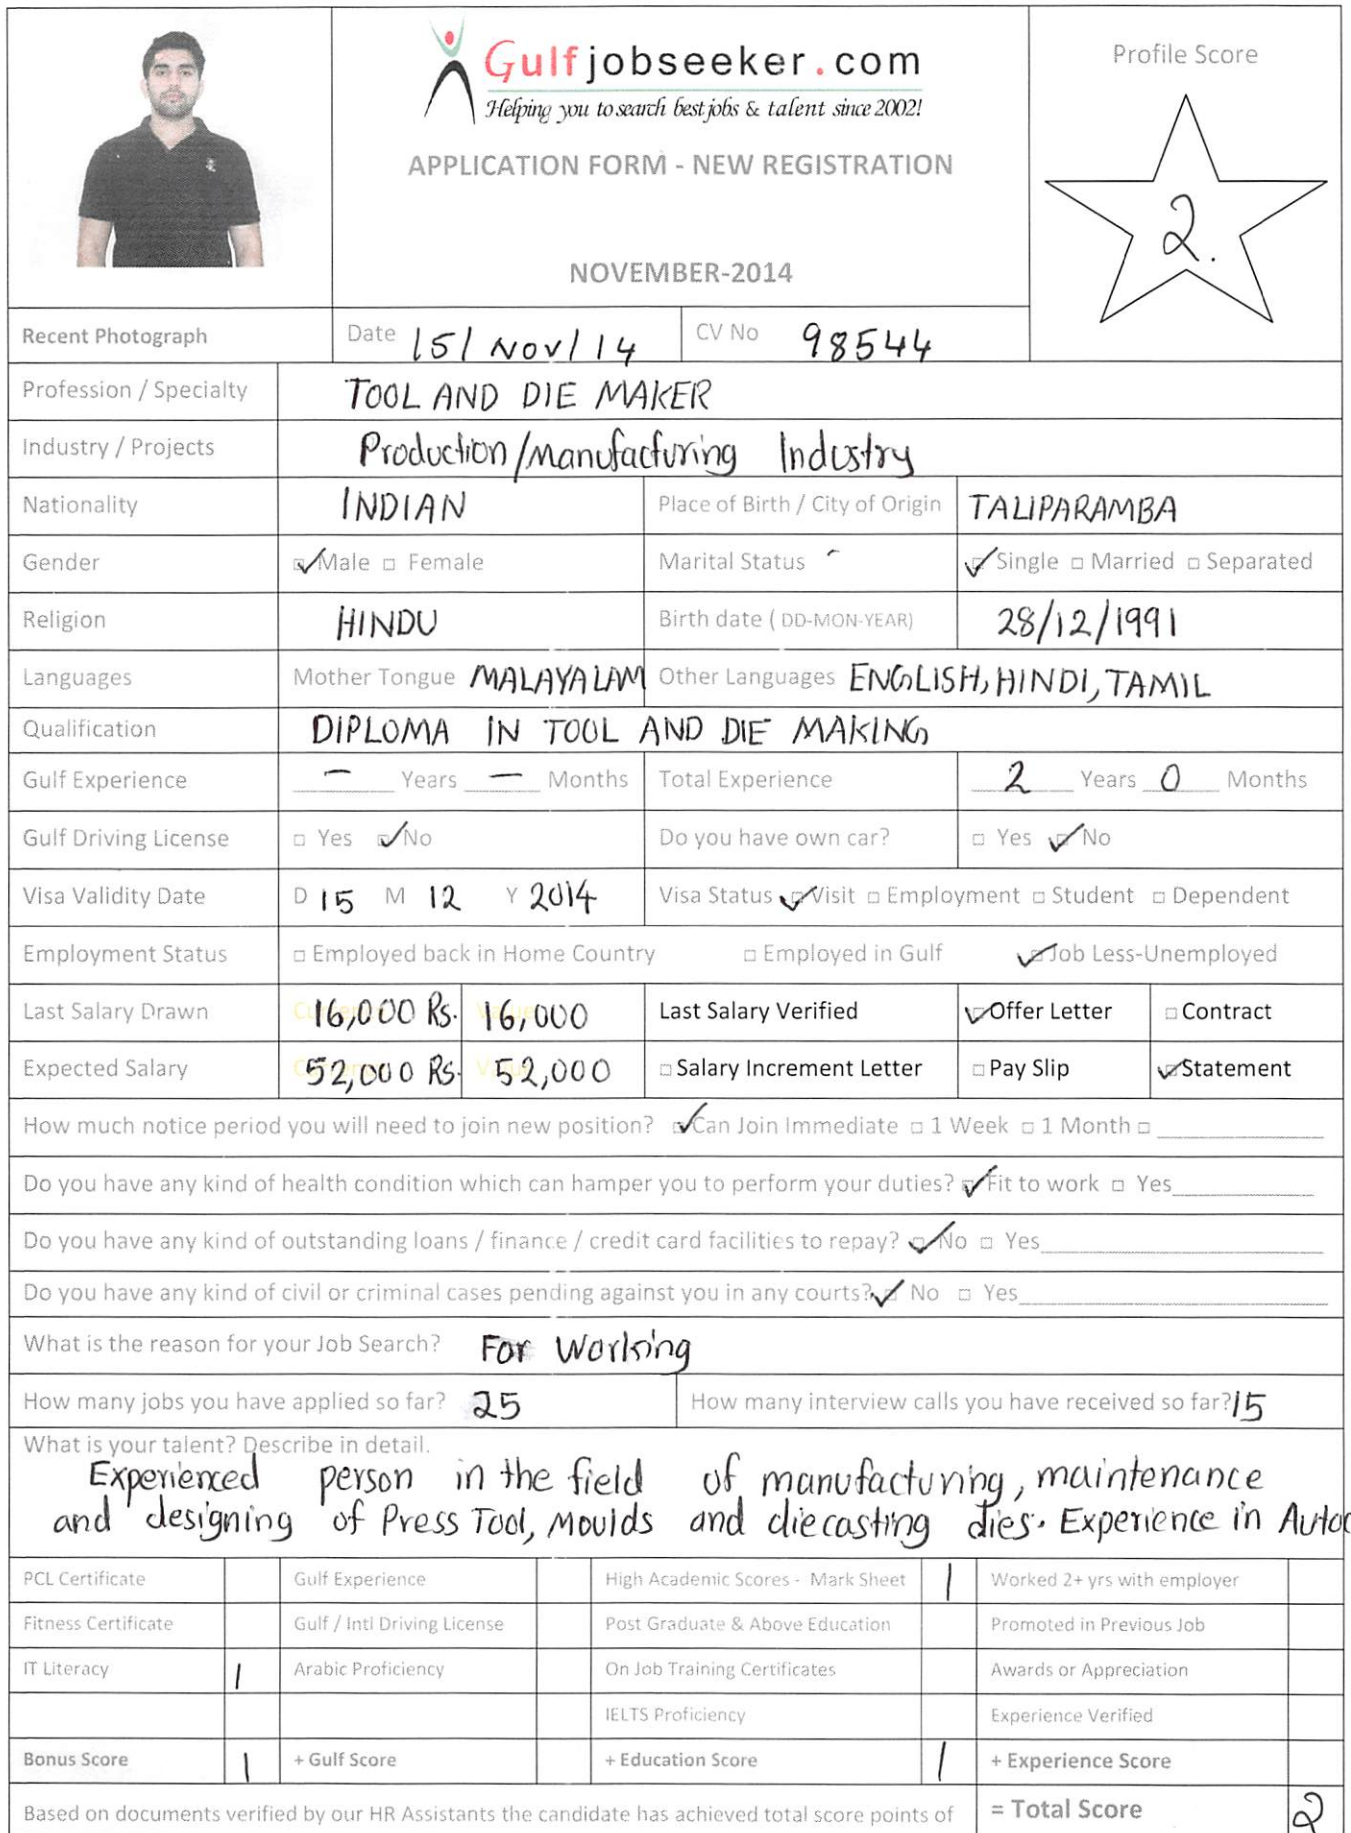 Gulfjobseeker.com
Helping you to search best jobs & talent since 2002!
APPLICATION FORM - NEW REGISTRATION
NOVEMBER-2014
Profile Score
2.
Recent Photograph
Date 15/Nov/14
CV No 98544
Profession / Specialty TOOL AND DIE MAKER
Industry / Projects Production/Manufacturing Industry
Nationality INDIAN Place of Birth / City of Origin TALIPARAMBA
Gender Male Female Marital Status Single Married Separated
Religion HINDU Birth date ( DD-MON-YEAR) 28/12/1991
Languages Mother Tongue MALAYALAM Other Languages ENGLISH, HINDI, TAMIL
Qualification DIPLOMA IN TOOL AND DIE MAKING
Gulf Experience – Years – Months Total Experience 2 Years 0 Months
Gulf Driving License Yes No Do you have own car? Yes No
Visa Validity Date D 15 M 12 Y 2014 Visa Status Visit Employment Student Dependent
Employment Status Employed back in Home Country Employed in Gulf Job Less-Unemployed
Last Salary Drawn 16,000 Rs. 16,000 Last Salary Verified Offer Letter Contract
Expected Salary 52,000 Rs. 52,000 Salary Increment Letter Pay Slip Statement
How much notice period you will need to join new position? Can Join Immediate 1 Week 1 Month
Do you have any kind of health condition which can hamper you to perform your duties? Fit to work Yes
Do you have any kind of outstanding loans / finance / credit card facilities to repay? No Yes
Do you have any kind of civil or criminal cases pending against you in any courts? No Yes
What is the reason for your Job Search? For Working
How many jobs you have applied so far? 25 How many interview calls you have received so far? 15
What is your talent? Describe in detail.
Experienced person in the field of manufacturing, maintenance
and designing of Press Tool, Moulds and diecasting dies. Experience in
PCL Certificate Gulf Experience High Academic Scores - Mark Sheet 1 Worked 2+ yrs with employer
Fitness Certificate Gulf / Intl Driving License Post Graduate & Above Education Promoted in Previous Job
IT Literacy 1 Arabic Proficiency On Job Training Certificates Awards or Appreciation
IELTS Proficiency Experience Verified
Bonus Score 1 + Gulf Score + Education Score 1 + Experience Score
Based on documents verified by our HR Assistants the candidate has achieved total score points of = Total Score 2